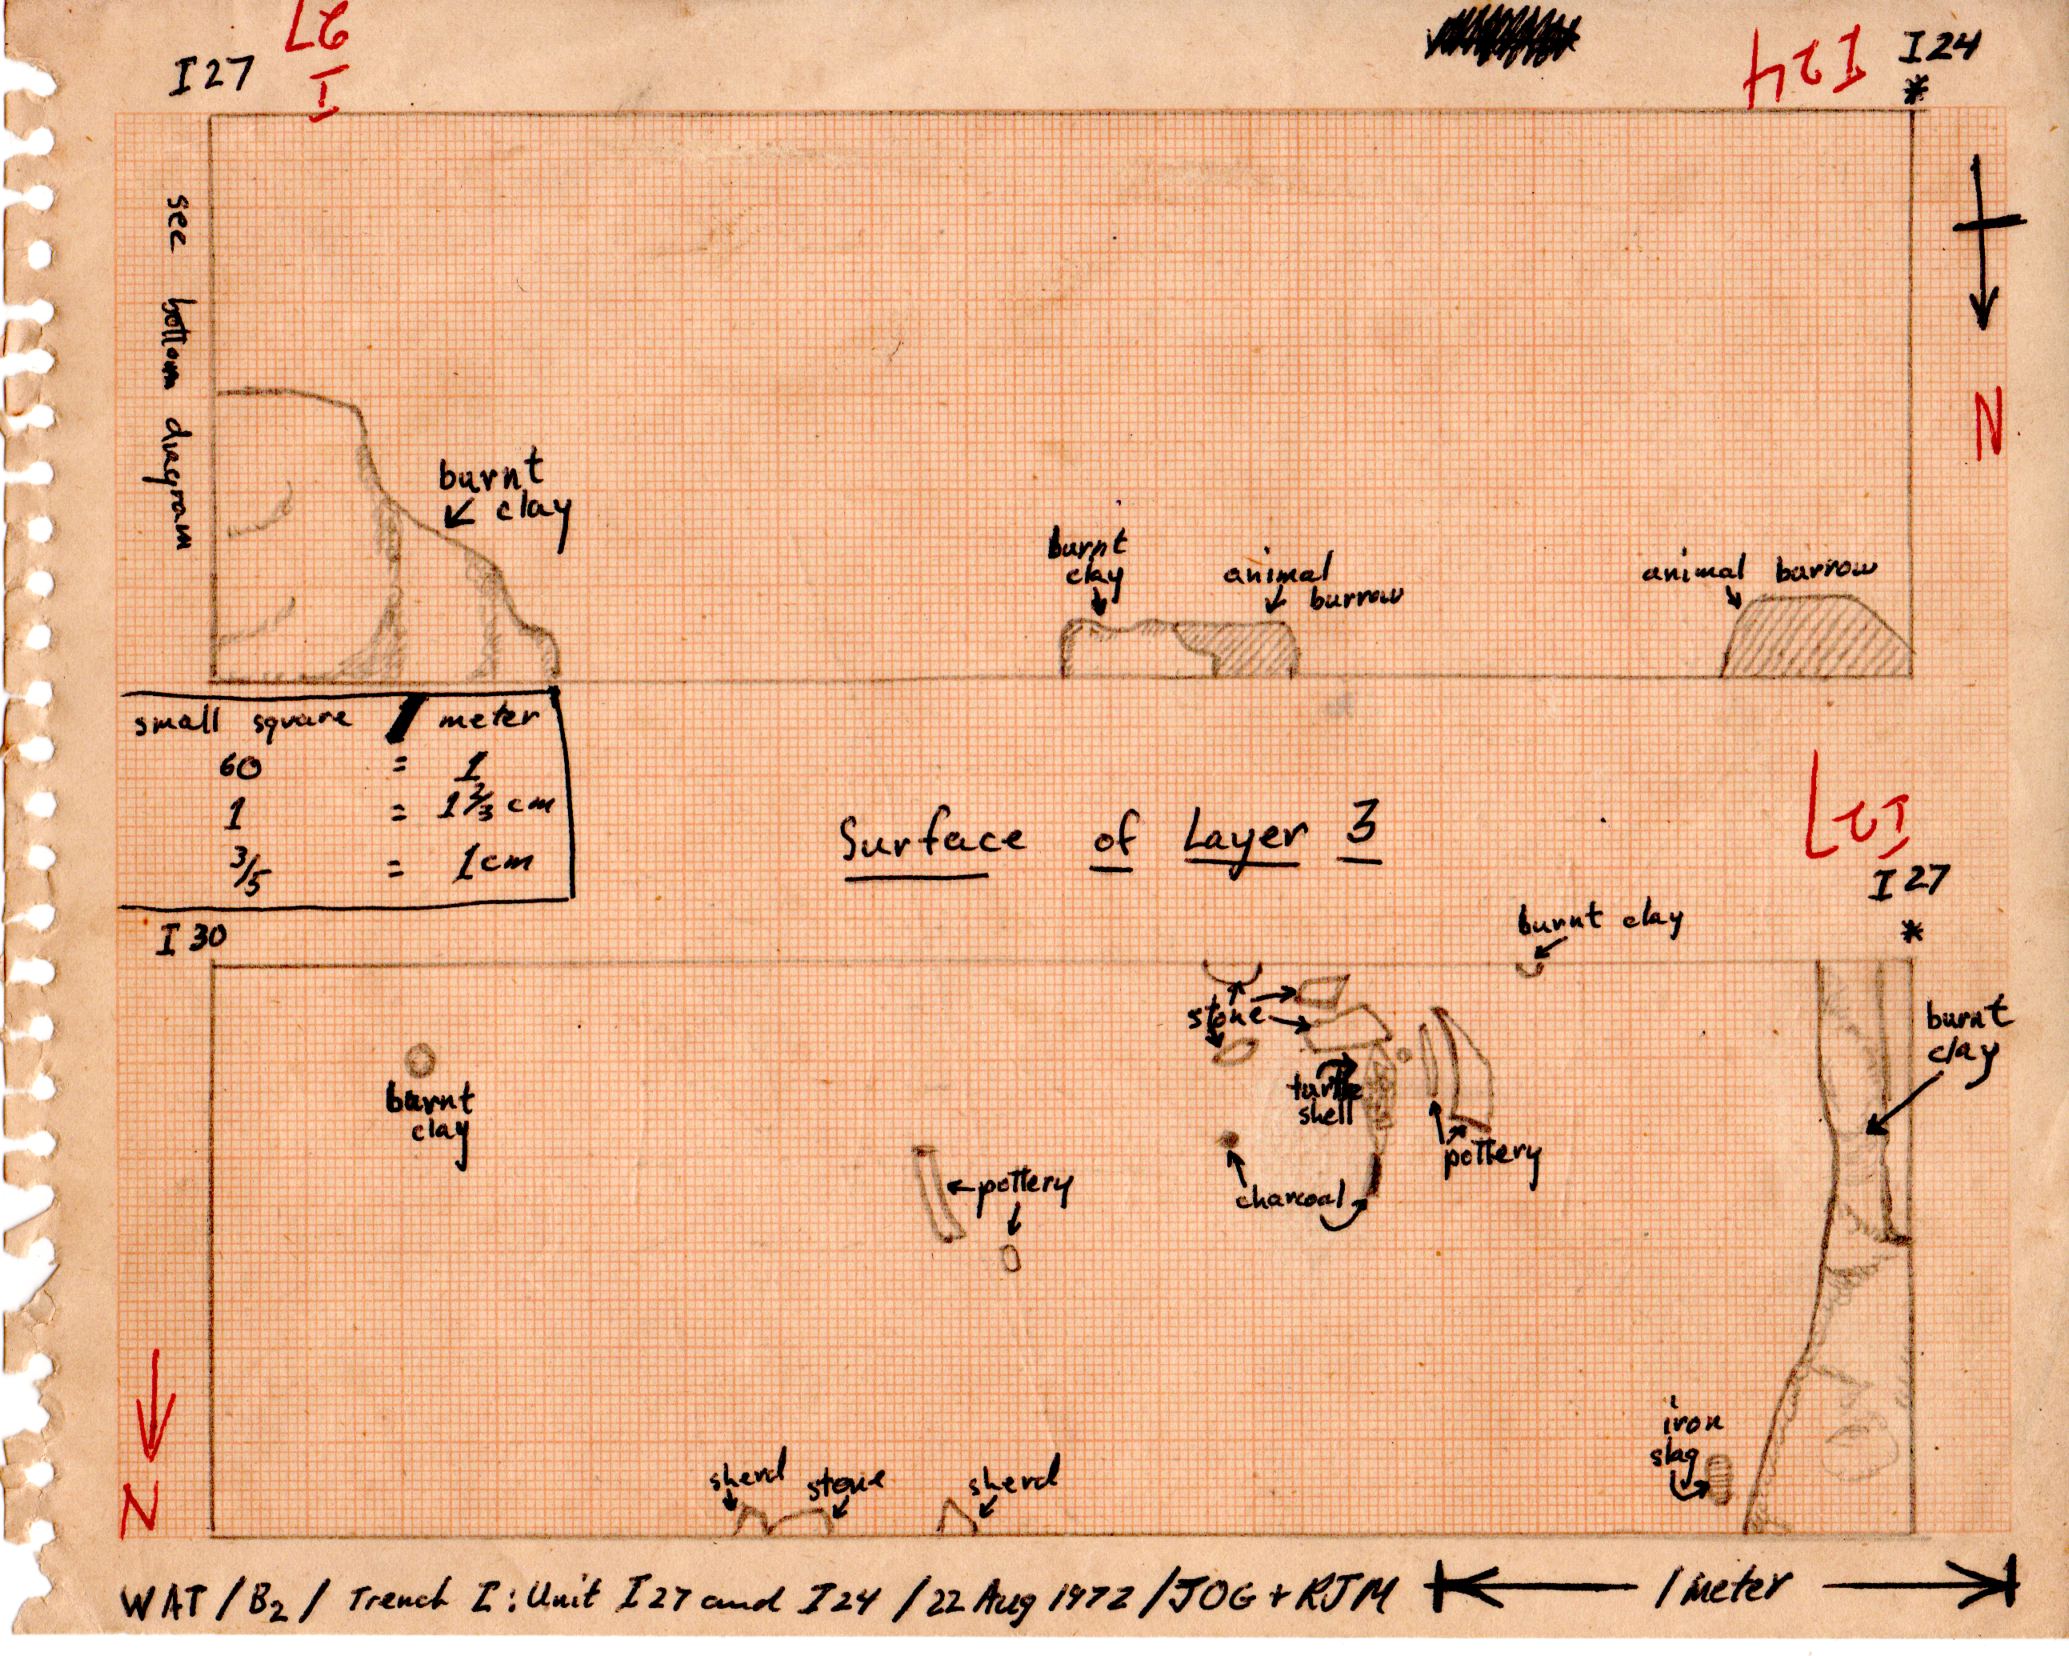 I27
I 27
I24
I24
*
N
see bottom diagram
burnt
clay
burnt
clay
animal
burrow
animal barrow
small square meter
60 = 1
1 = 1 2/3 cm
3/5 = 1 cm
Surface of Layer 3
I27
I 27
*
I 30
burnt clay
stone
burnt
clay
burnt
clay
turtle
shell
pottery
pottery
charcoal
iron
slag
sherd
stone
sherd
N
WAT / B2 / Trench I : Unit I27 and I24 / 22 Aug 1972 / JOG + RJM
1 meter